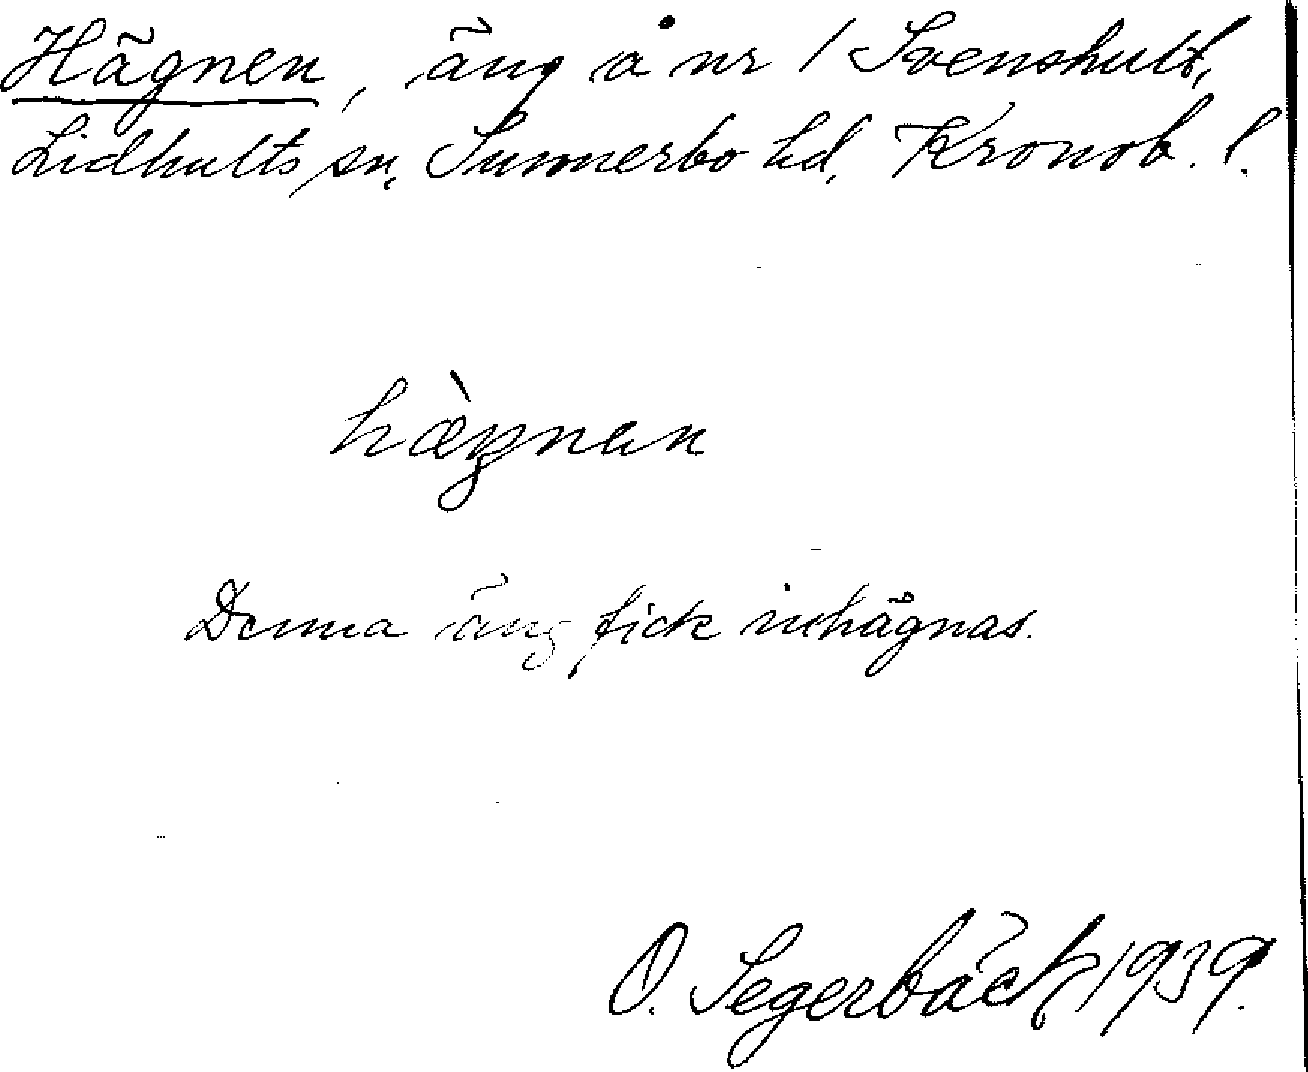 Hägnen, äng å nr 1 Svenshult,
Lidhults sn, Sunnerbo hd, Kronob. l.
hæ̀ŋnen
Denna äng fick inhägnas.
O. Segerbäck 1939.